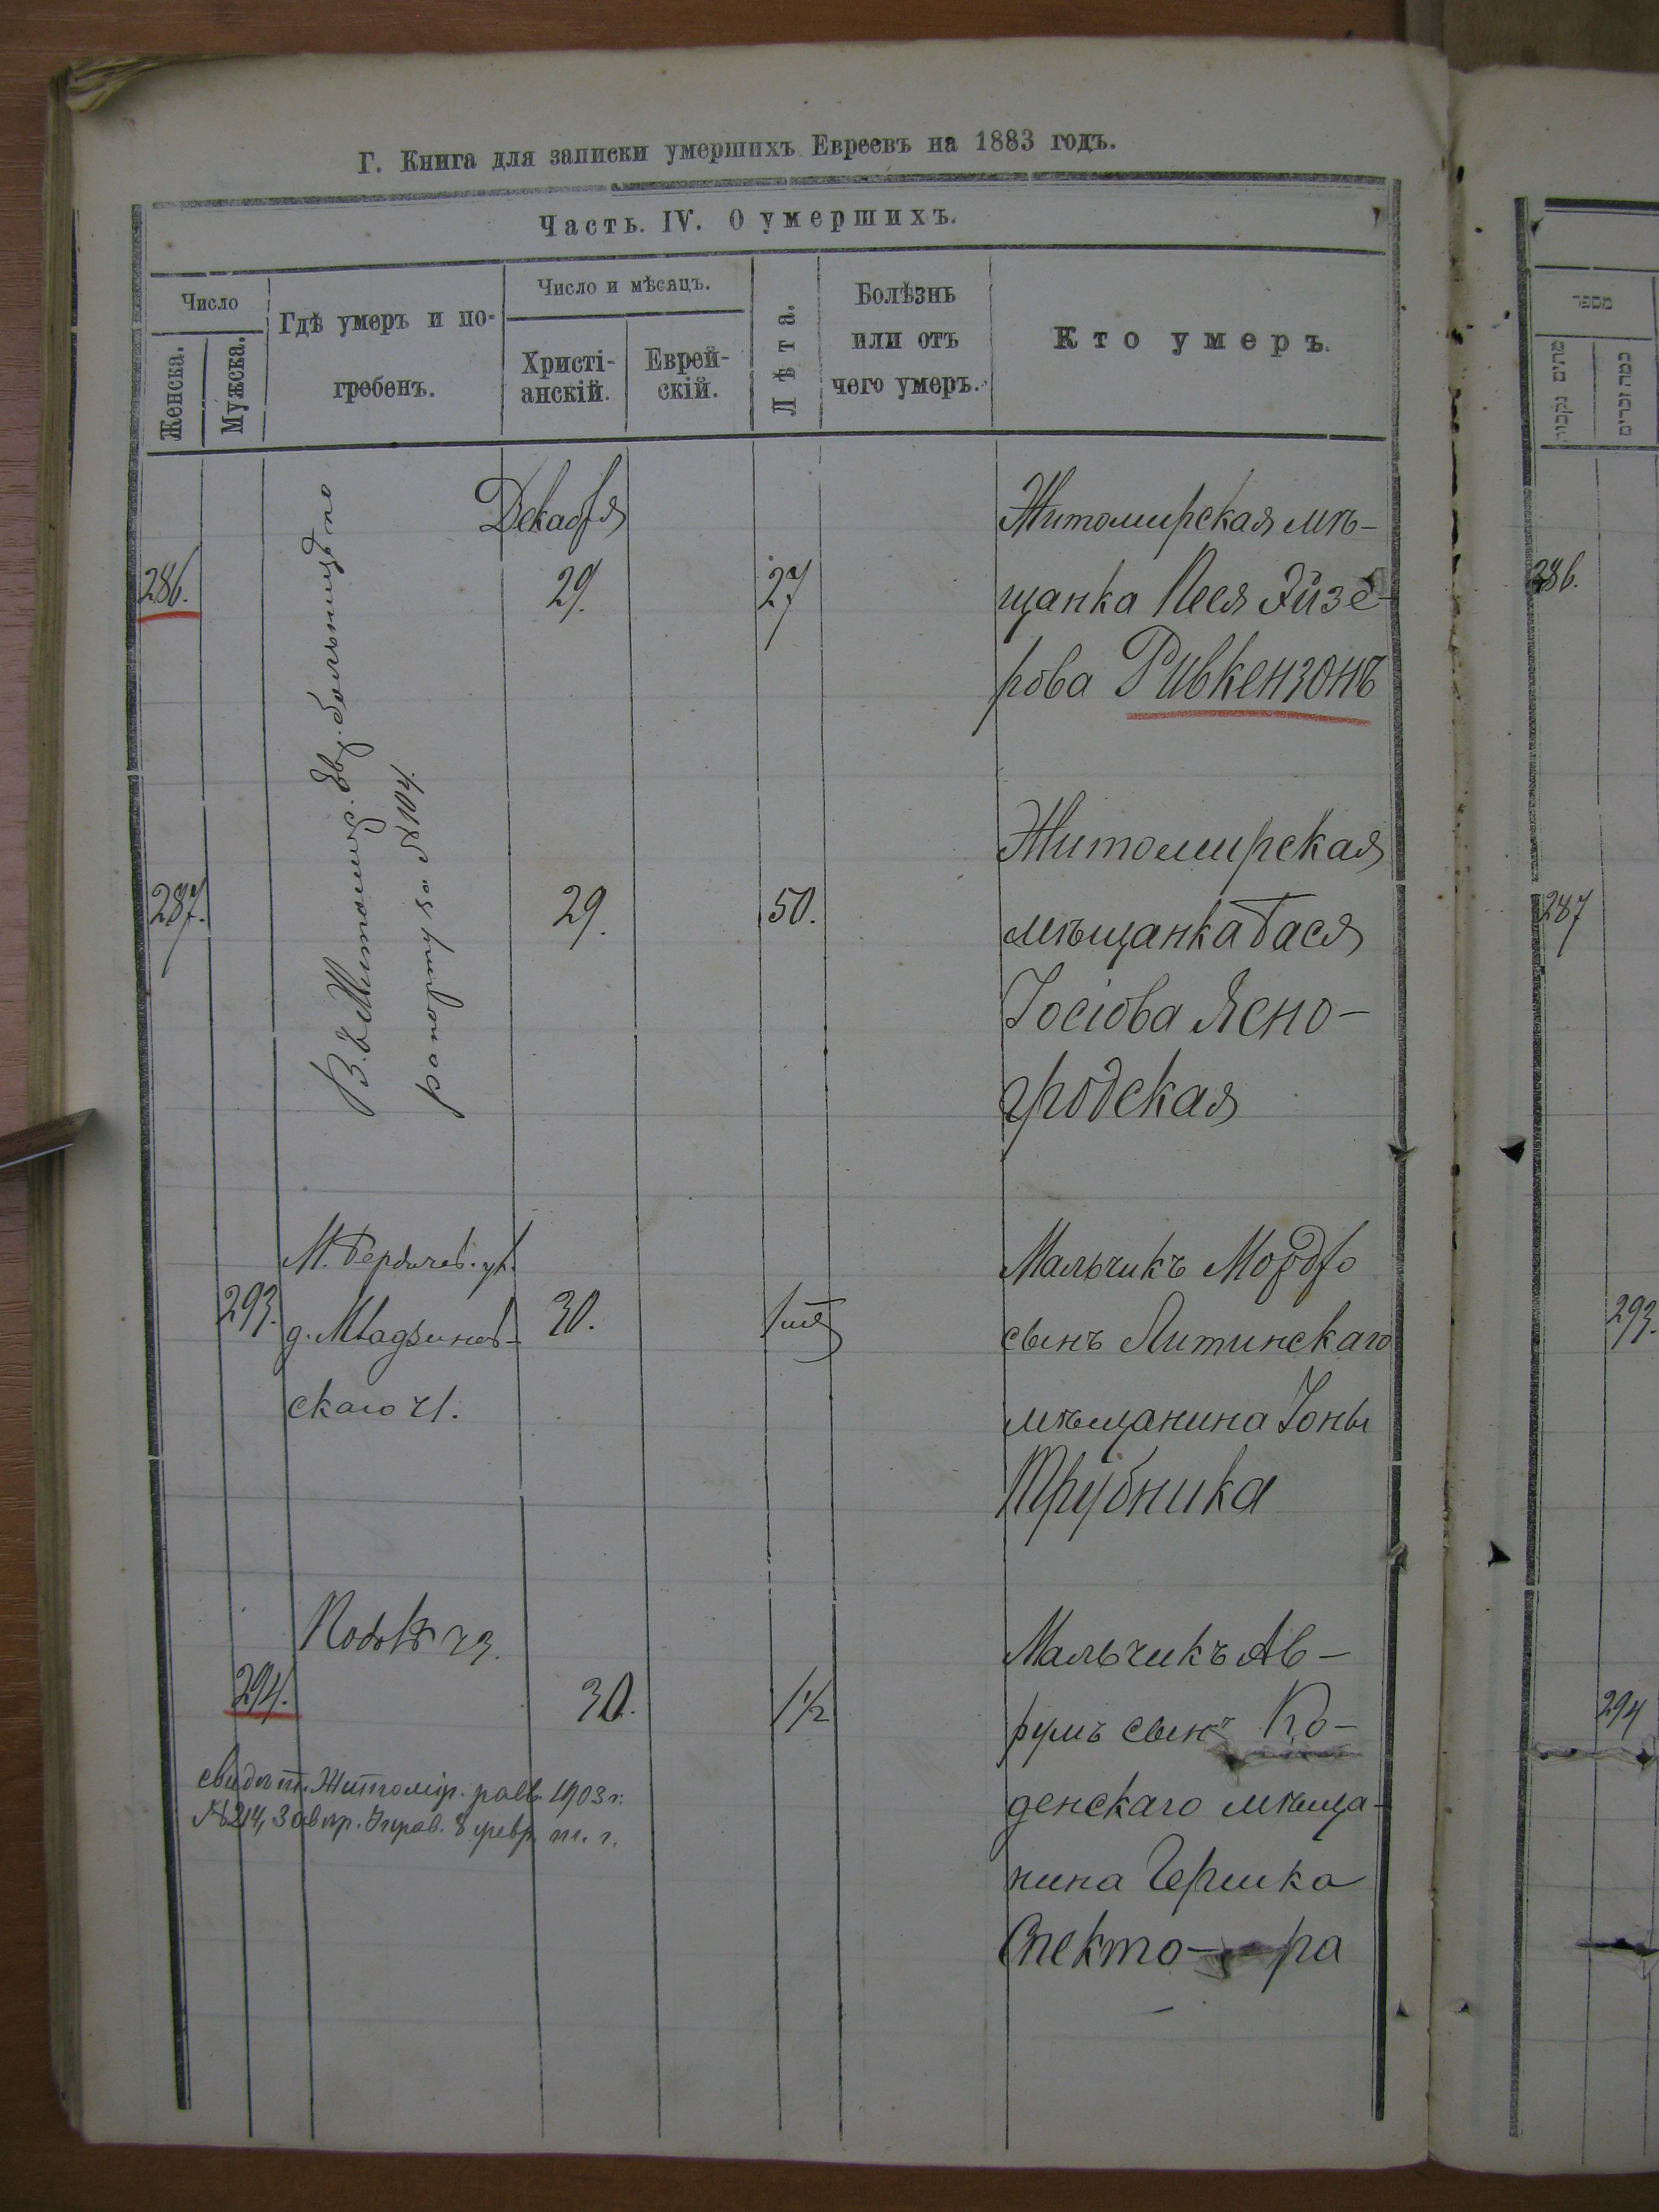 Г. Книга для записки умершихъ Евреевъ на 1883 годъ.
Часть. IV. О умершихъ.
Число
Женска.
Мужска.
Гдѣ умеръ и по-
гребенъ.
Число и мѣсяцъ.
Христі-
анскій.
Еврей-
скій.
Лѣта.
Болѣзнь
или отъ
чего умеръ.
Кто умеръ.
286.
В. г. Житомир. Евр. больницѣ по
рапорту за № 104.
Декабря
29.
27
Житомирская мѣ-
щанка Песя Эйзе-
рова Ривкензонъ
287.
29.
50.
Житомирская
мѣщанка Бася
Іосіова Ясно-
городская
293.
М. Бердичев. ул.
д.
скаго ч1.
30.
Мальчикъ Мордко
сынъ Литинскаго
мѣщанина Іоны
Трубника
294.
ч3.
30.
1½
Мальчикъ Ав-
румъ сынъ Ко-
денскаго мѣща-
нина Гершка
Спекто-ра
свидѣт. Житомір. равв. 1903 г.
№ 214, 8 февр. т. г.
מספר
כמה זכרים
286.
287
293.
294